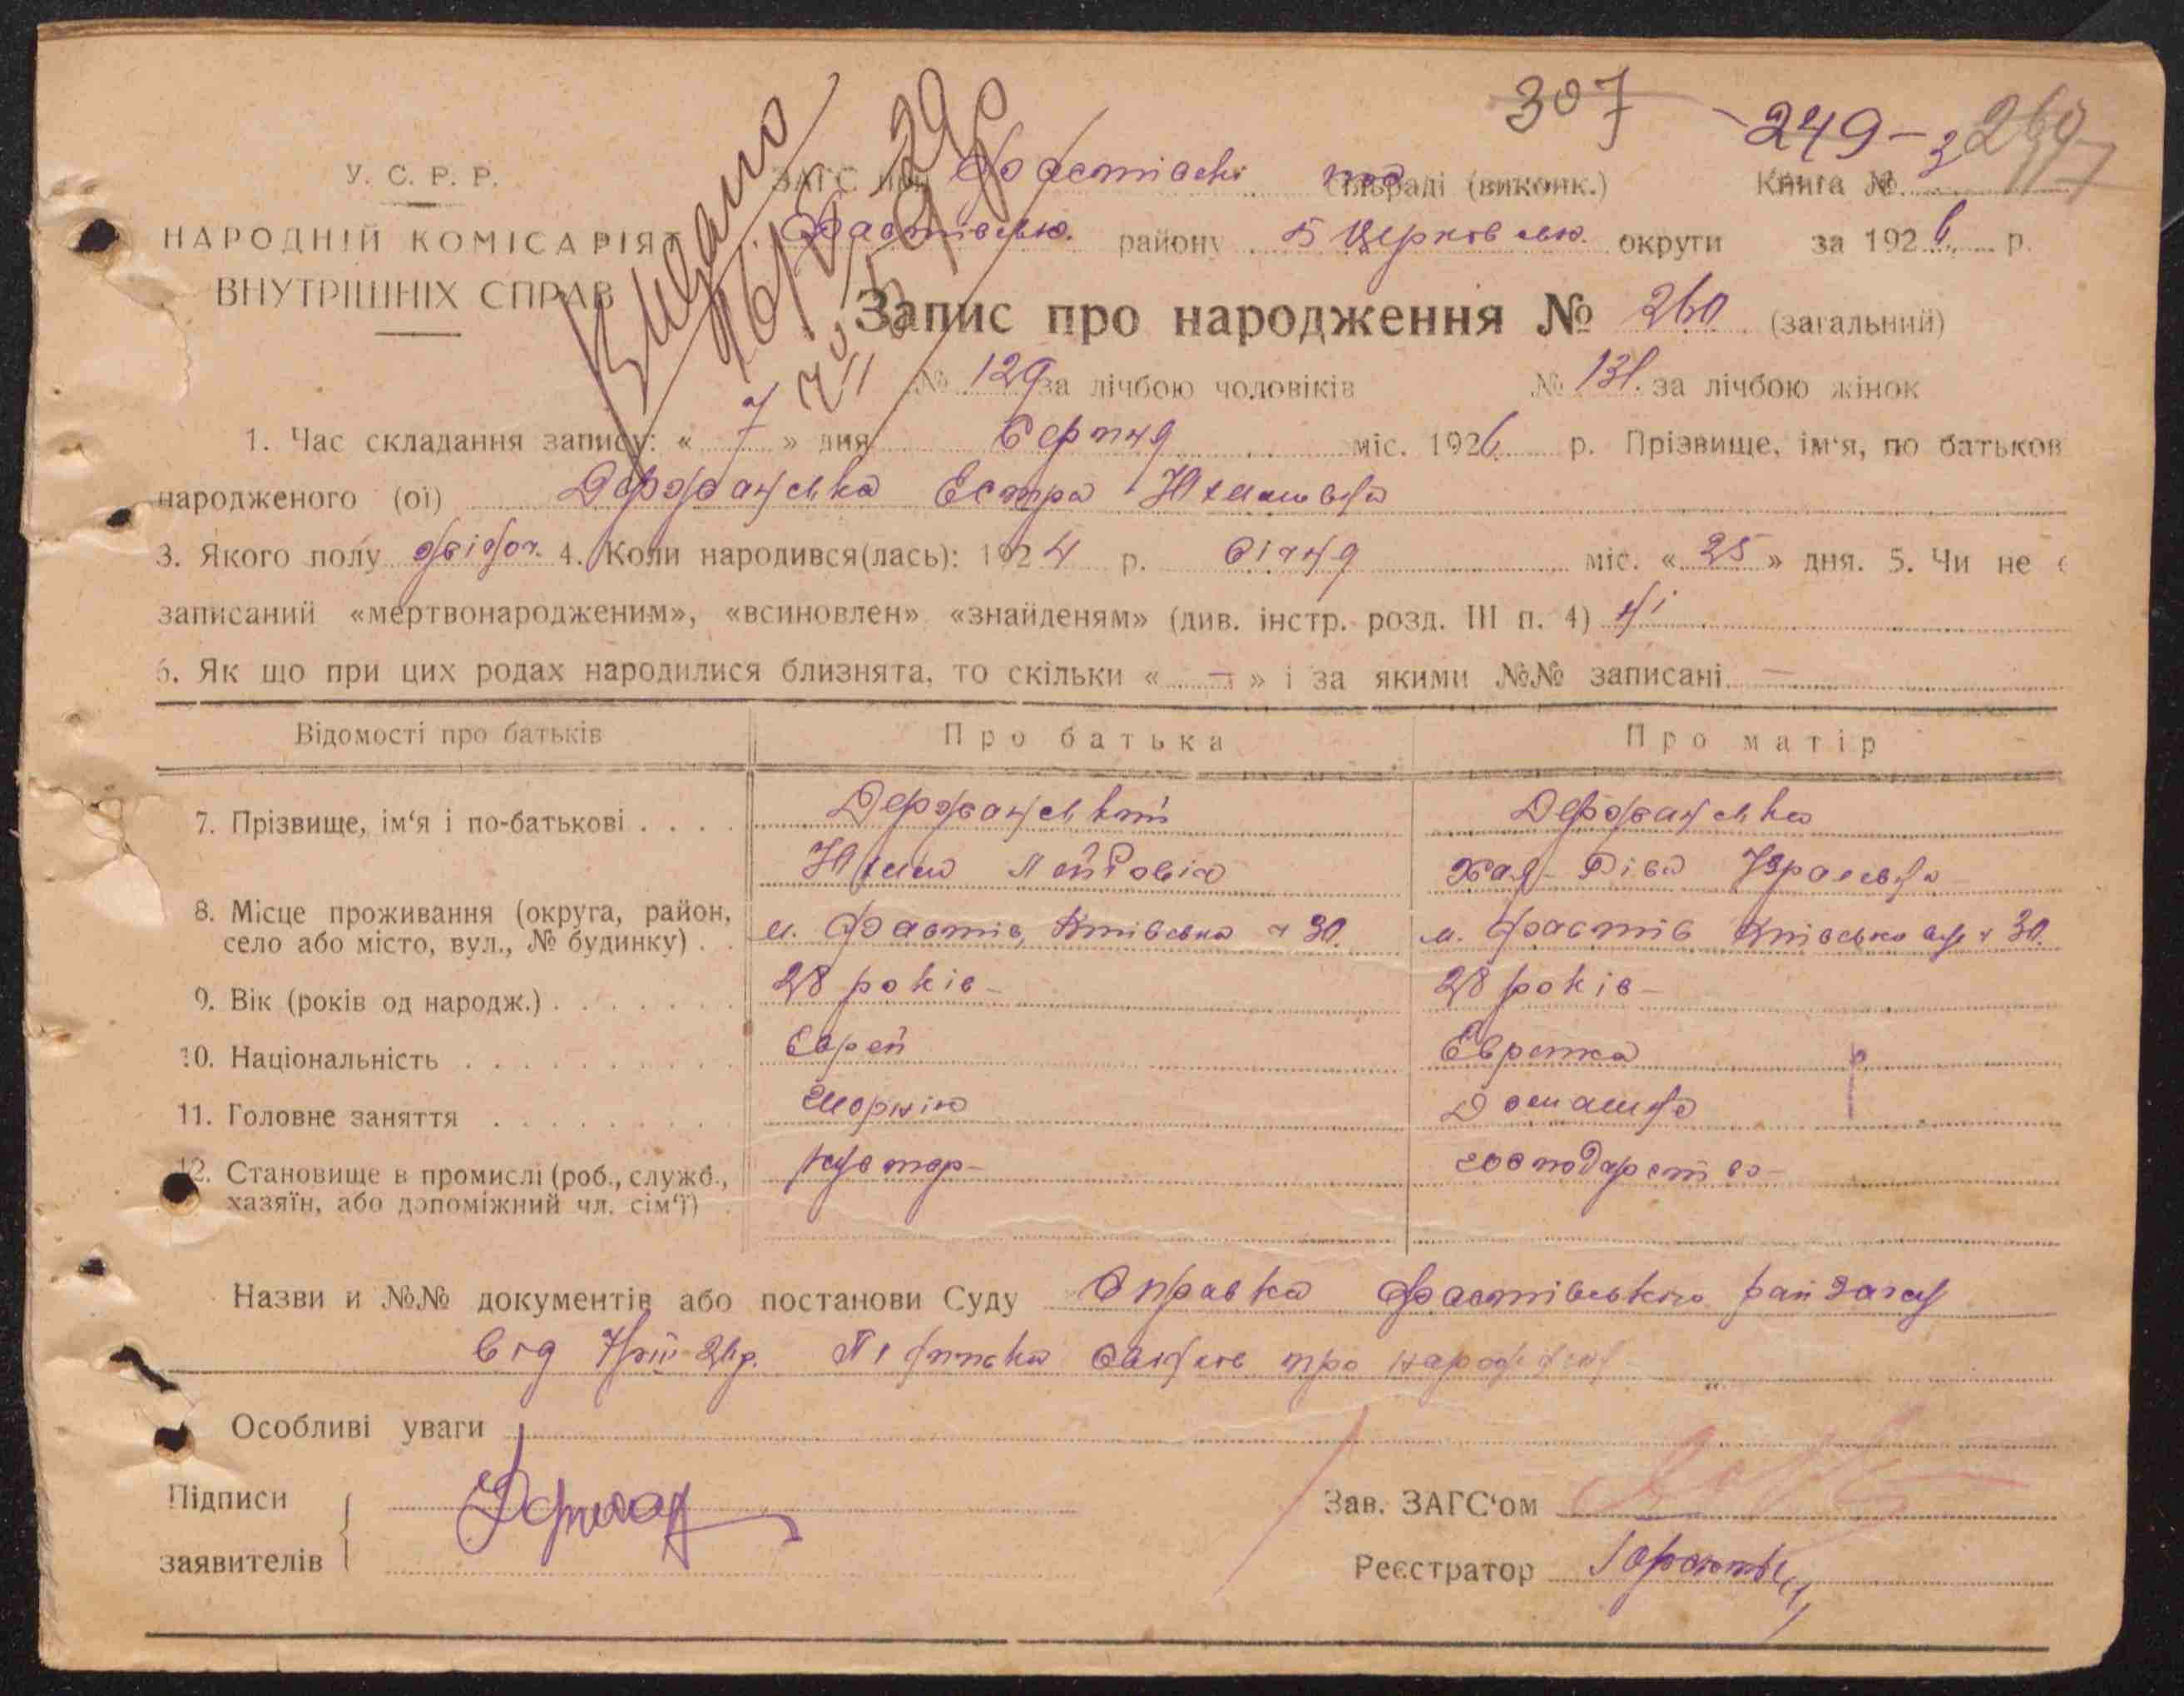 307
249-
У. С. Р. Р.
ЗАГС при Фастівськ. сільраді (виконк.) Книга №
НАРОДНІЙ КОМІСАРІЯТ
ВНУТРІШНІХ СПРАВ
Видано
Фастівськ. району Б Церковськ. округи за 1926 р.
Запис про народження № 260 (загальний)
№ 129 за лічбою чоловіків № 131. за лічбою жінок
1. Час складання запису: « 7 » дня Серпня міс. 1926 р. Прізвище, ім'я, по батьков
народженого (ої) Держанська Естра
3. Якого полу жіноч. 4. Коли народився(лась): 1924 р. Січня міс. « 25 » дня. 5. Чи не є
записаний «мертвонародженим», «всиновлен» «знайденям» (див. інстр. розд. III п. 4) ні
6. Як що при цих родах народилися близнята, то скільки « — » і за якими №№ записані —
Відомості про батьків Про батька Про матір
7. Прізвище, ім'я і по-батькові . . . . Держанський Держанська
Хая-Ріва Ізраелевна
8. Місце проживання (округа, район,
село або місто, вул., № будинку) . . м. Фастів, Київська ч 30. м. Фастів Київська вул ч 30.
9. Вік (років од народж.) . . . . . . . 28 років- 28 років-
10. Національність . . . . . . . . . . Еврей Еврейка
11. Головне заняття . . . . . . . . . Домашнє
12. Становище в промислі (роб., служб.,
хазяїн, або допоміжний чл. сім'ї) . кустар- господарство-
Назви и №№ документів або постанови Суду Справка Фастівського райзагсу
від 7/VIII-26р. підписка свідків про народження
Особливі уваги
Підписи
заявителів
Зав. ЗАГС'ом
Реєстратор